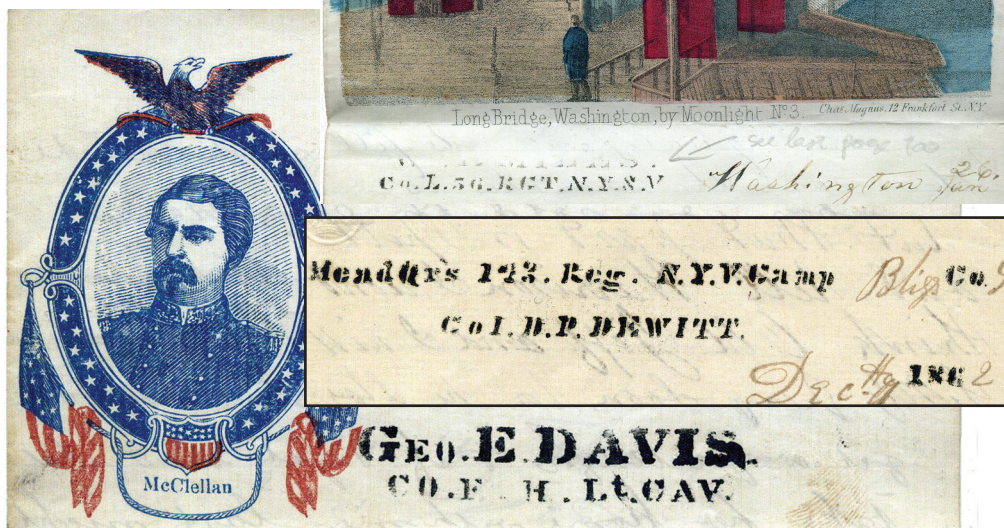 Long Bridge, Washington, by Moonlight Nº 3.
Chas. Magnus. 12 Frankfort St. N.Y
see last page too
Co. L. 56. RGT. N.Y.S.V
Washington Jan 26.
Head Qrs 143. Reg. N.Y.V. Camp Bliss Co.
Col. D.P. DEWITT.
Dec. 1862
GEO. E. DAVIS.
CO. F H. Lt. CAV.
McClellan